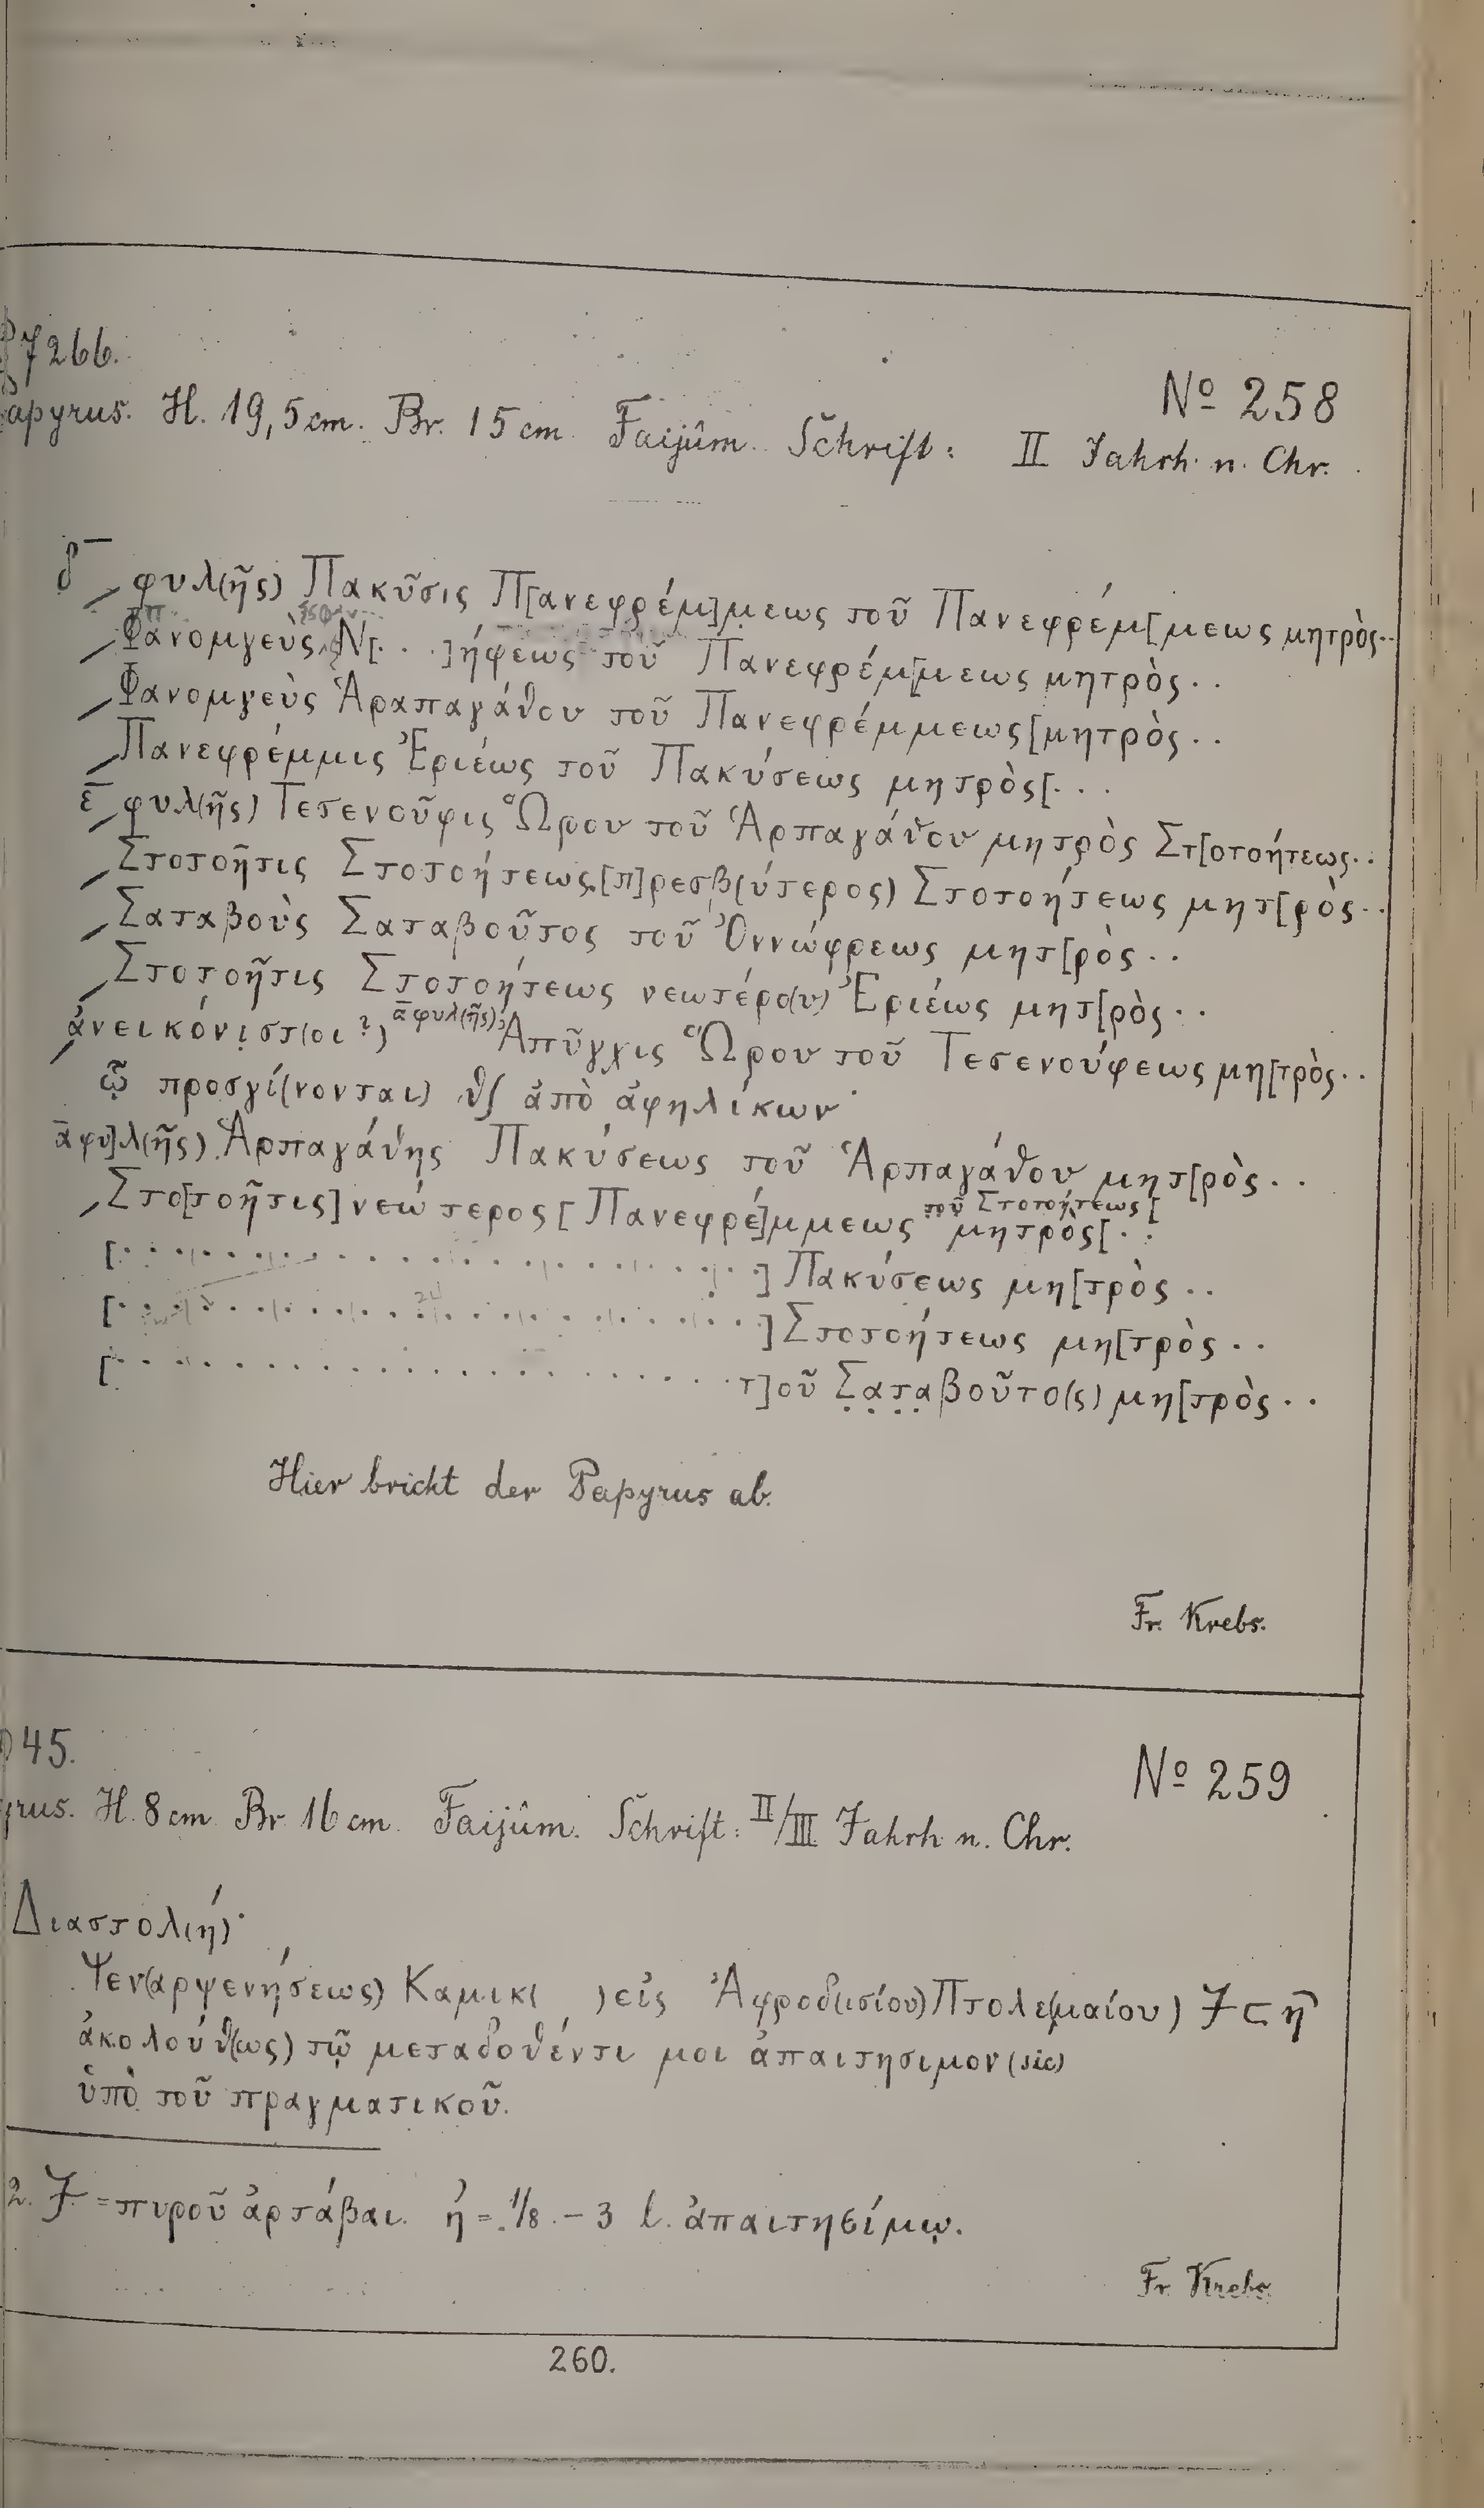 7266.
Nº 258
apyrus. H. 19,5 cm. Br. 15 cm. Faijûm. Schrift: II Jahrh. n. Chr.
δ̅ φυλ(ῆς) Πακῦσις Π[ανεφρέμ]μεως τοῦ Πανεφρέμ[μεως μητρὸς..
Φανομγεὺς Ν[. . .]ήφεως τοῦ Πανεφρέμ[μεως μητρὸς..
Φανομγεὺς Ἁραπαγάθου τοῦ Πανεφρέμμεως [μητρὸς..
Πανεφρέμμις Ἐριέως τοῦ Πακύσεως μητρὸς[...
ε̅ φυλ(ῆς) Τεσενοῦφις Ὥρου τοῦ Ἁρπαγάθου μητρὸς Στ[οτοήτεως..
Στοτοῆτις Στοτοήτεως [π]ρεσβ(ύτερος) Στοτοήτεως μητ[ρὸς..
Σαταβοὺς Σαταβοῦτος τοῦ Ὀννώφρεως μητ[ρὸς..
Στοτοῆτις Στοτοήτεως νεωτέρο(υ) Ἐριέως μητ[ρὸς..
ἀνεικόνιστ(οι?) α̅ φυλ(ῆς) Ἀπῦγχις Ὥρου τοῦ Τεσενούφεως μη[τρὸς..
ᾧ προσγί(νονται) θ∫ ἀπὸ ἀφηλίκων·
α̅ φυ]λ(ῆς) Ἁρπαγάθης Πακύσεως τοῦ Ἁρπαγάθου μητ[ρὸς..
Στο[τοῆτις] νεώτερος [Πανεφρέ]μμεως τοῦ Στοτοήτεως [μητρὸς[..
[. . . . . . . . . . . . . . . . . . . .] Πακύσεως μη[τρὸς..
[. . . . . . . . . . . . . . . . . . . .] Στοτοήτεως μη[τρὸς..
[. . . . . . . . . . . . . . . . . . . . τ]οῦ Σ̣α̣τ̣α̣βοῦτο(ς) μη[τρὸς..
Hier bricht der Papyrus ab.
Fr. Krebs.
45.
Nº 259
yrus. H. 8 cm Br. 16 cm. Faijûm. Schrift: II/III Jahrh. n. Chr.
Διαστολ(ή)·
Ψεν(αρψενήσεως) Καμικ( ) εἰς Ἀφροδ(ισίου) Πτολε(μαίου) 𐅏 ⊂ η̅
ἀκολούθ(ως) τῷ μεταδοθέντι μοι ἀπαιτησιμον (sic)
ὑπὸ τοῦ πραγματικοῦ.
2. 𐅏 = πυροῦ ἀρτάβαι. ή = 1/8. – 3 l. ἀπαιτησίμῳ.
Fr. Krebs.
260.